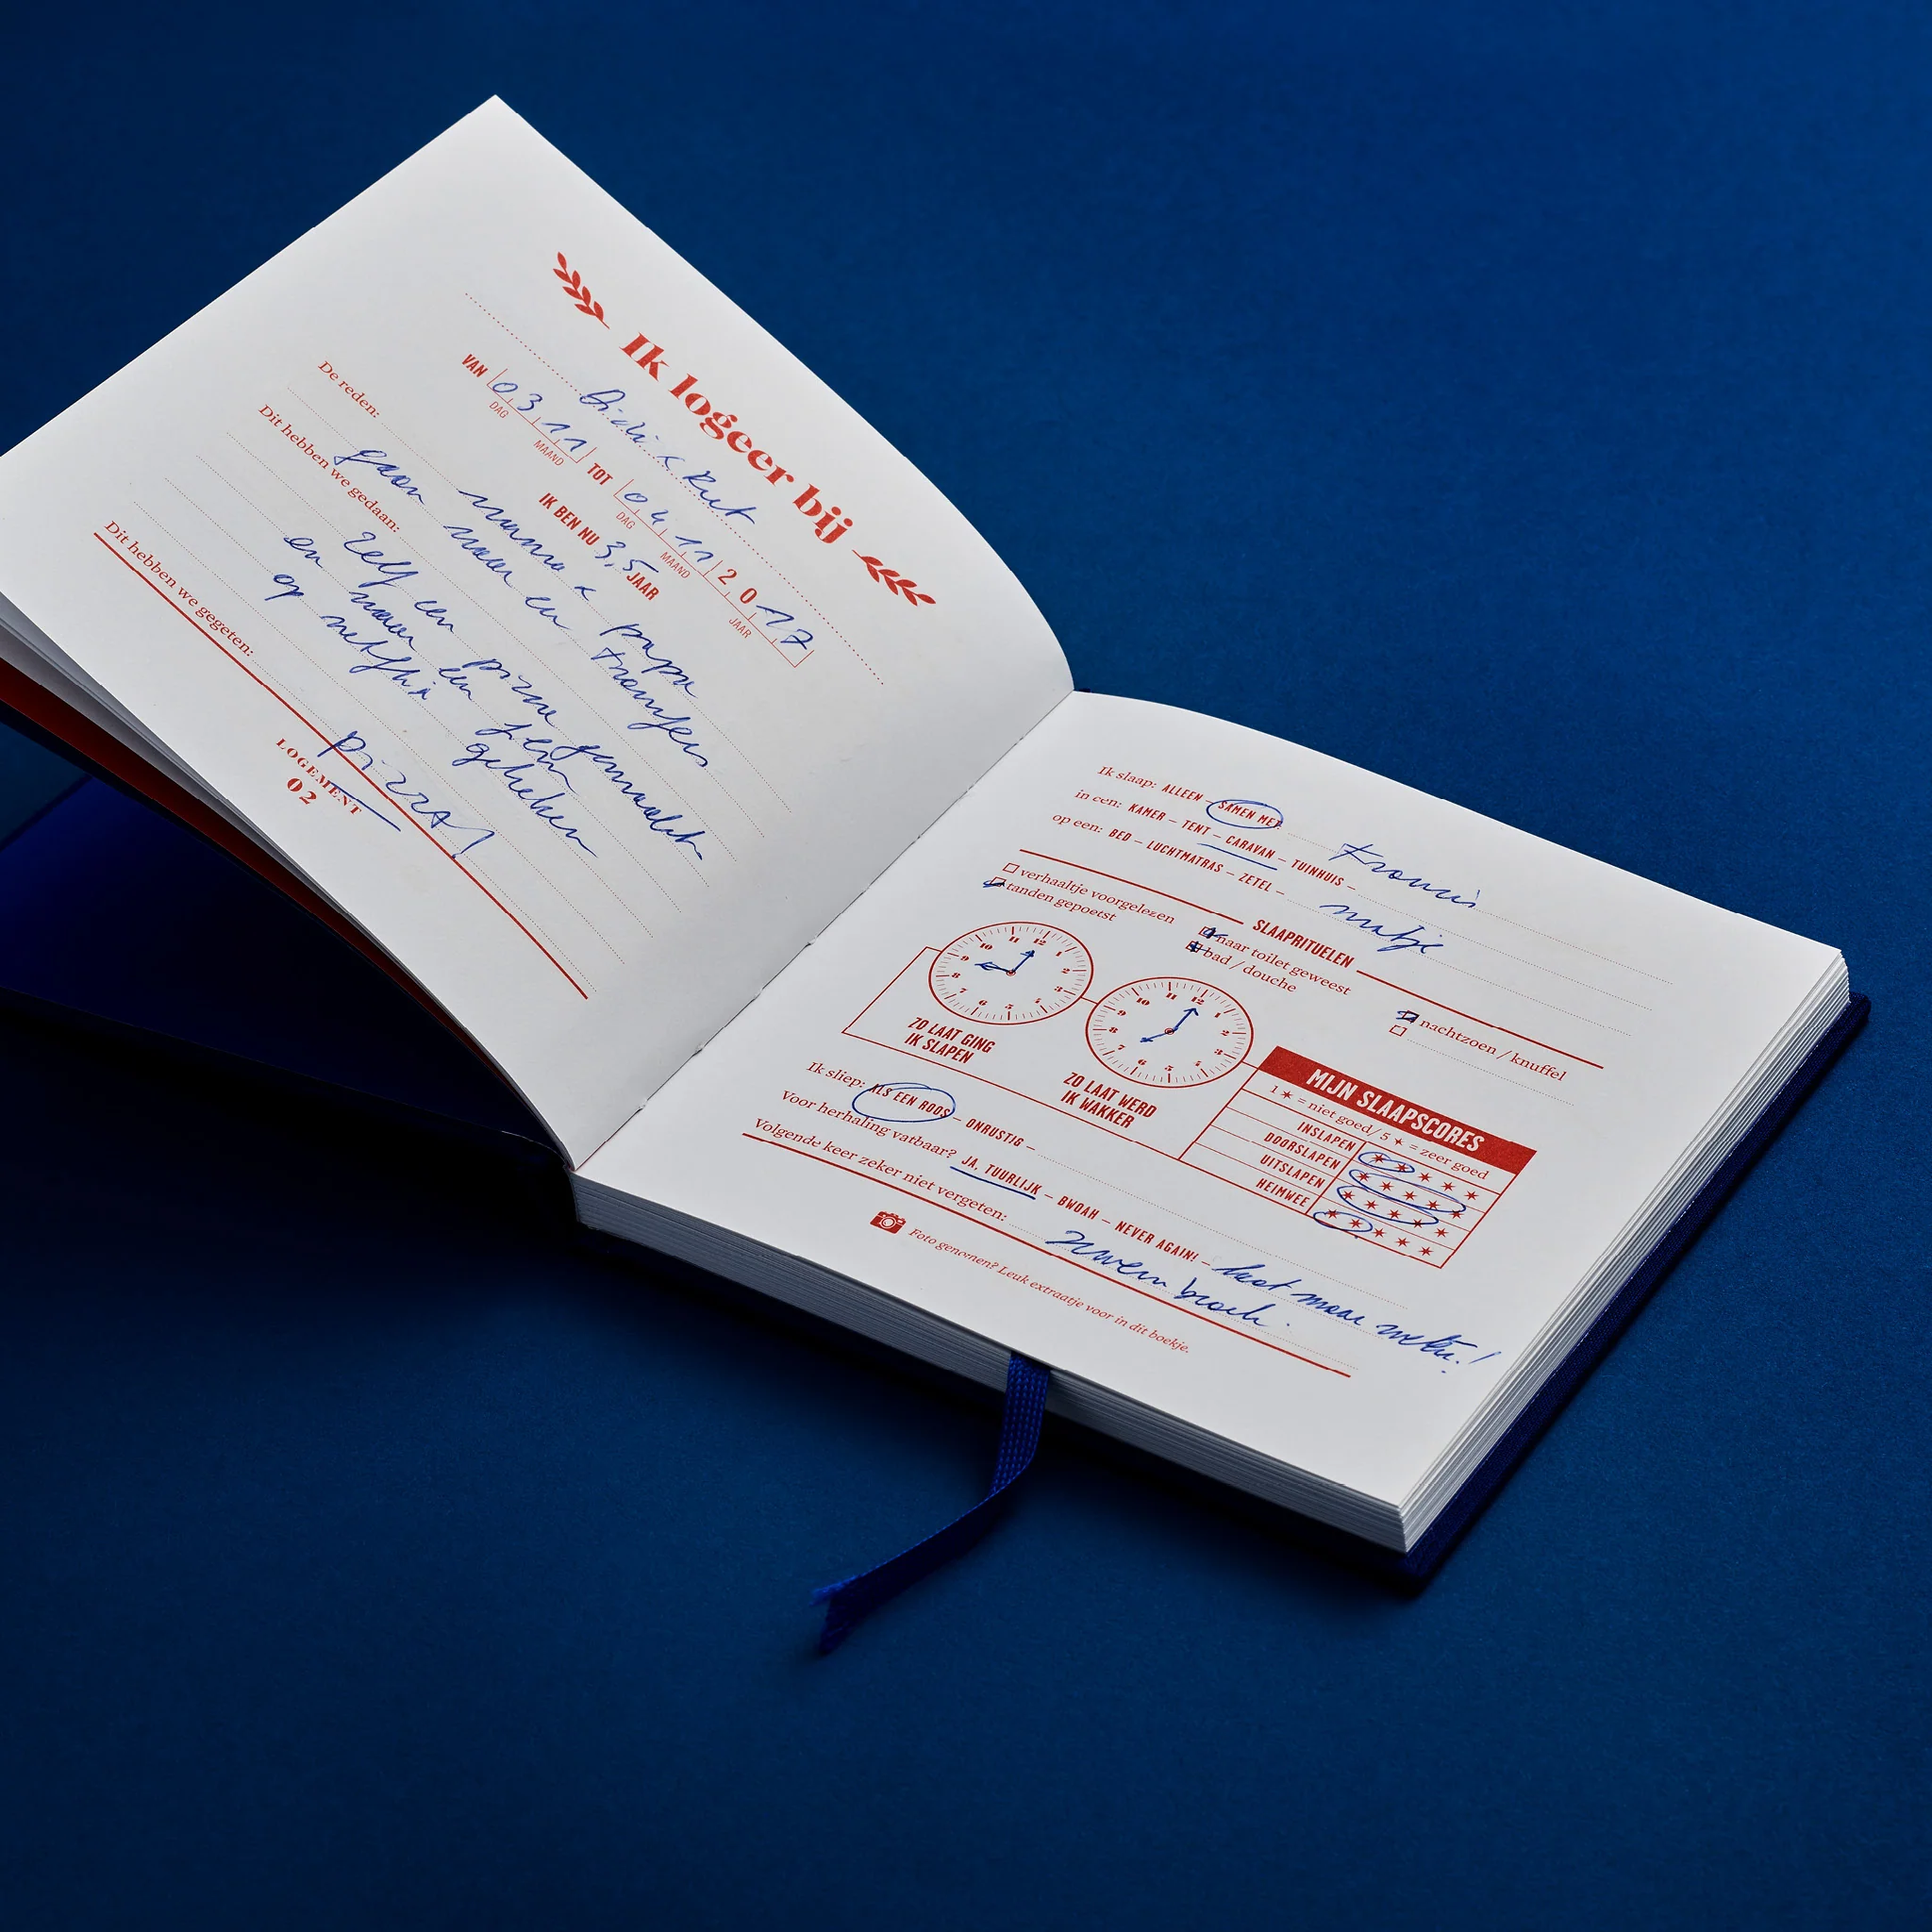 Ik logeer bij
Didi & Rut
VAN 03 11 TOT 04 11 2017
DAG MAAND DAG MAAND JAAR
IK BEN NU 3,5 JAAR
De reden:
mama & papa
gaan naar en
Dit hebben we gedaan:
zelf een pizza gemaakt
en naar een film
op netflix gekeken
Dit hebben we gegeten:
pizza!
LOGEMENT
02
Ik slaap: ALLEEN – SAMEN MET Francis
in een: KAMER – TENT – CARAVAN – TUINHUIS –
op een: BED – LUCHTMATRAS – ZETEL – matje
SLAAPRITUELEN
verhaaltje voorgelezen
naar toilet geweest
nachtzoen / knuffel
tanden gepoetst
bad / douche
11 12 1 2 3 4 5 6 7 8 9 10
ZO LAAT GING
IK SLAPEN
11 12 1 2 3 4 5 6 7 8 9 10
ZO LAAT WERD
IK WAKKER
MIJN SLAAPSCORES
1 ✶ = niet goed / 5 ✶ = zeer goed
INSLAPEN ✶ ✶ ✶ ✶ ✶
DOORSLAPEN ✶ ✶ ✶ ✶ ✶
UITSLAPEN ✶ ✶ ✶ ✶ ✶
HEIMWEE ✶ ✶ ✶ ✶ ✶
Ik sliep: ALS EEN ROOS – ONRUSTIG –
Voor herhaling vatbaar? JA, TUURLIJK – BWOAH – NEVER AGAIN! – laat maar weten!
Volgende keer zeker niet vergeten: zwembroek.
Foto genomen? Leuk extraatje voor in dit boekje.